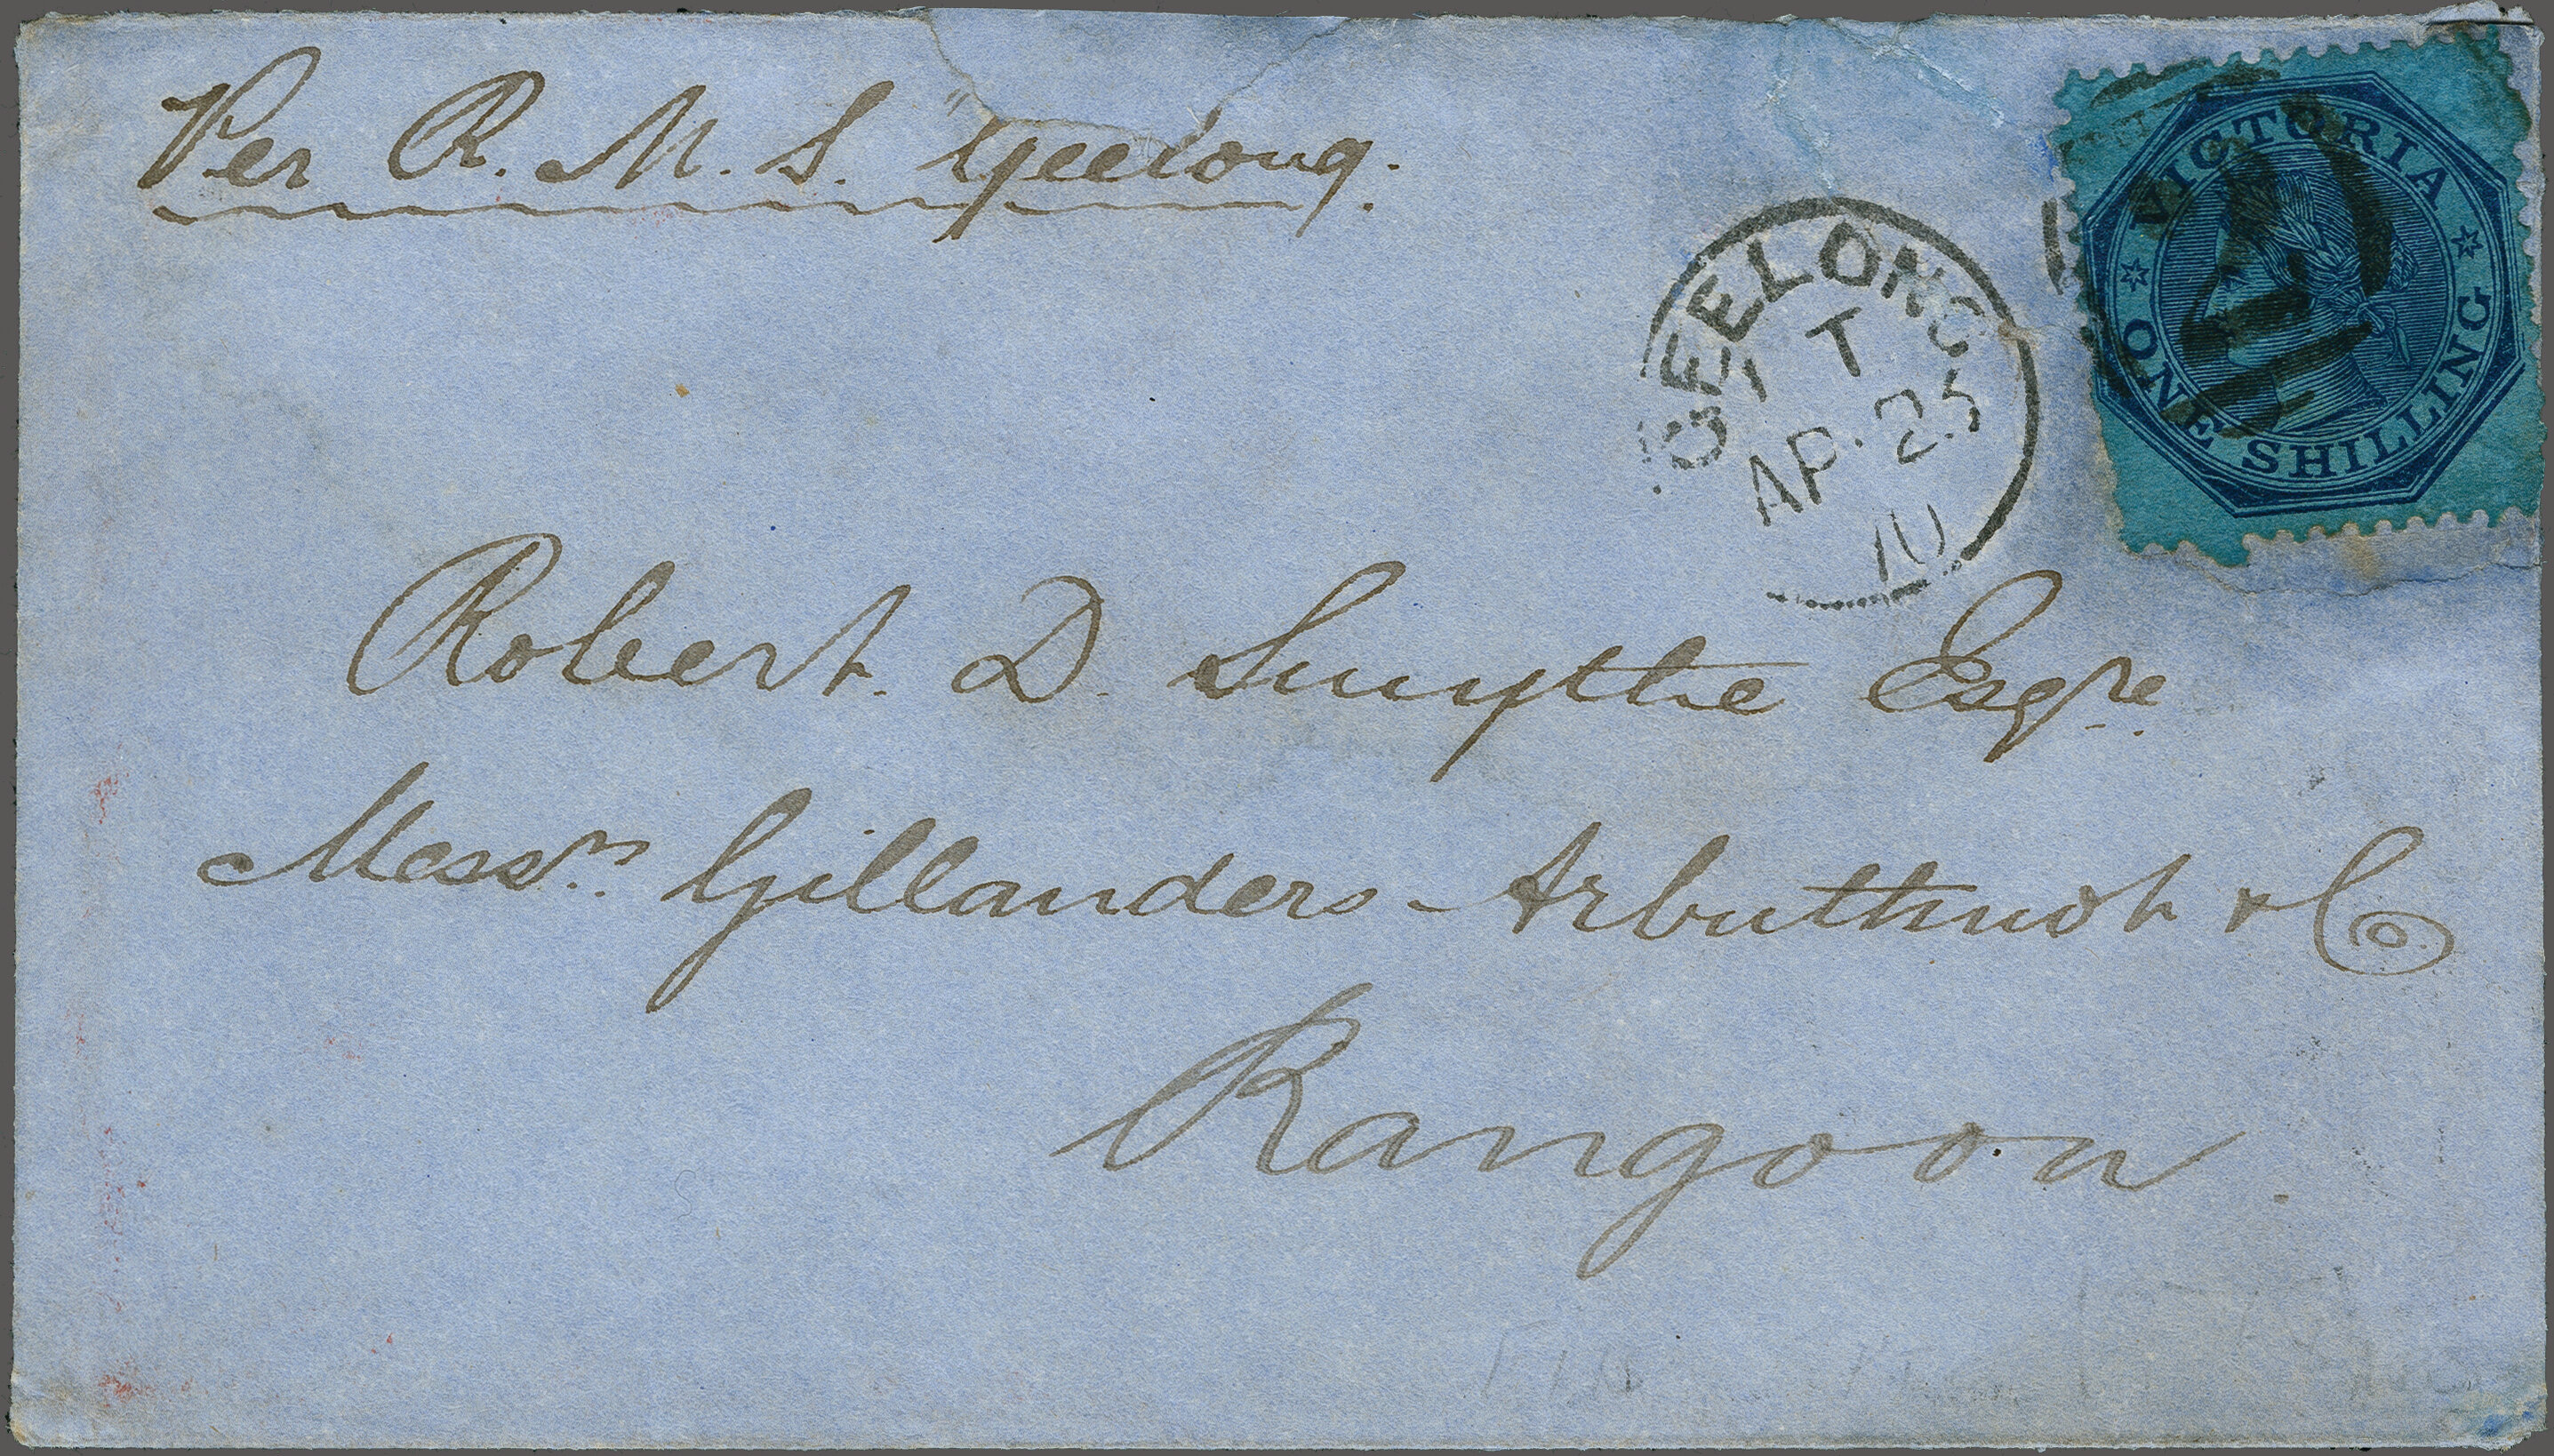 Per R. M. S. Geelong.
VICTORIA
ONE SHILLING
GEELONG
1 T
AP 25
70
Robert D. Smythe Esqre.
Messrs. Gillanders Arbuthnot & Co
Rangoon.